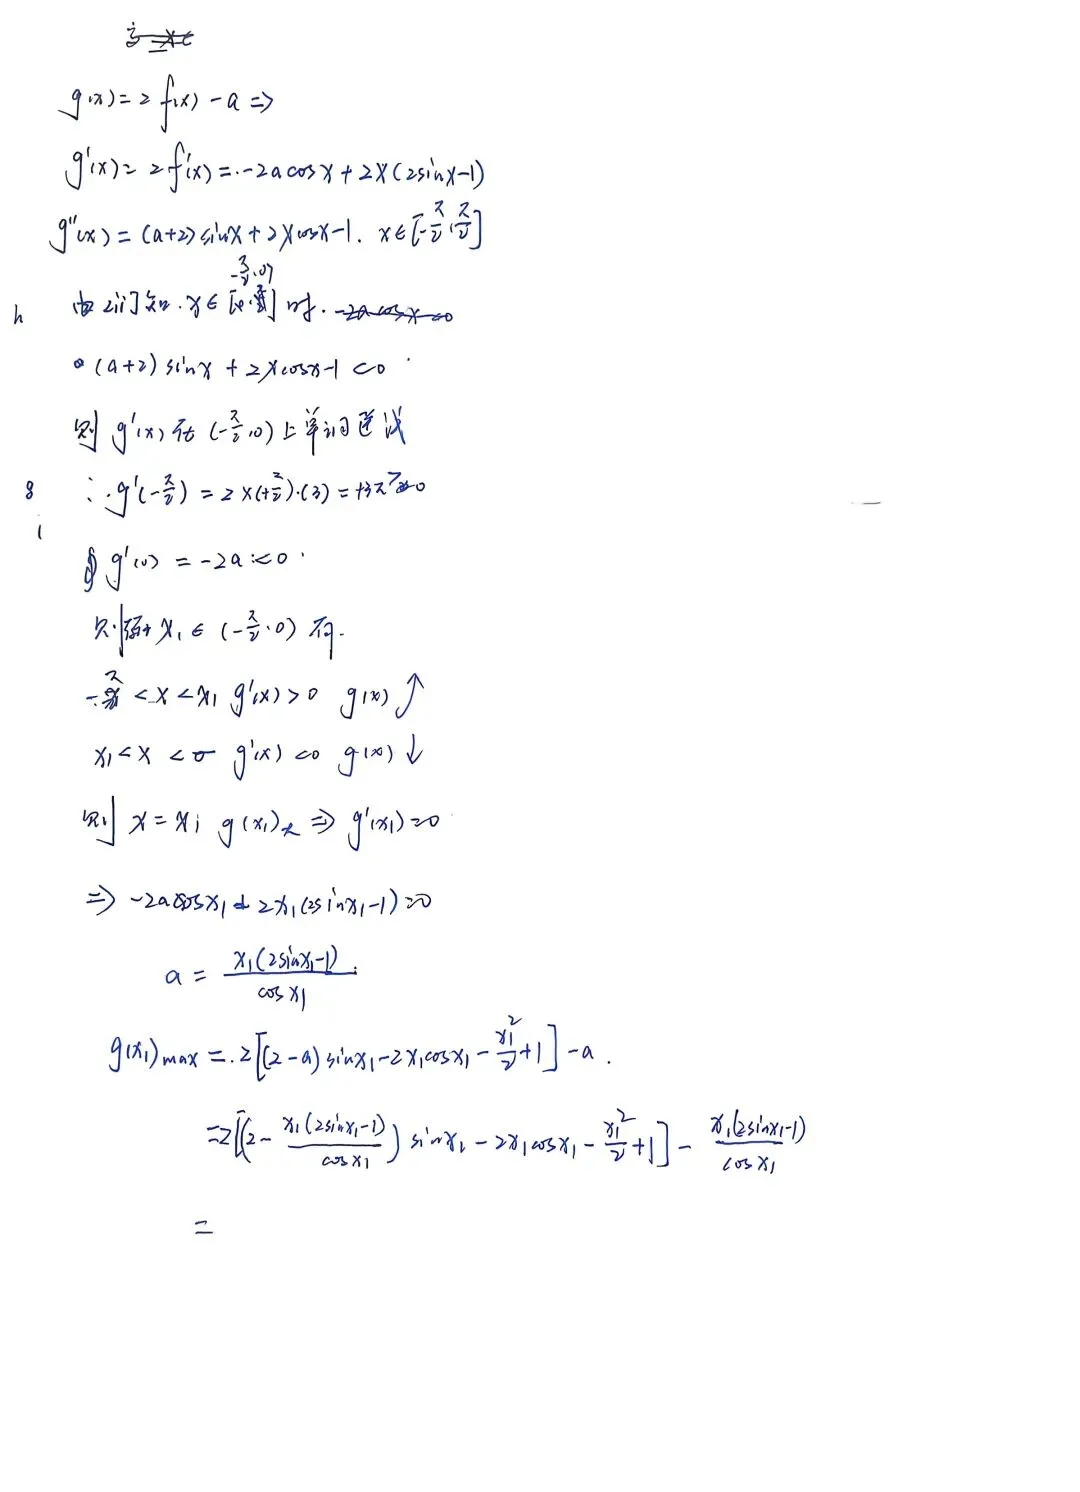 g(x)=2f(x)-a⇒
g'(x)=2f'(x)=-2acosx+2x(2sinx-1)
g''(x)=(a+2)sinx+2xcosx-1. x∈[-π/2,π/2]
-π/2,0)
h 由 知.x∈[ ]时.
(a+2)sinx+2xcosx-1<0
则g'(x)在(-π/2,0)上单调递减
g ∴g'(-π/2)=2×(+π/2)·(3)=+3π>0
i
g'(0)=-2a<0.
则 x₁∈(-π/2,0)有.
-π/2<x<x₁ g'(x)>0 g(x)↑
x₁<x<0 g'(x)<0 g(x)↓
则x=x₁ g(x₁)大⇒g'(x₁)=0
⇒-2acosx₁+2x₁(2sinx₁-1)=0
a=x₁(2sinx₁-1)/cosx₁.
g(x₁)max=.2[(2-a)sinx₁-2x₁cosx₁-x₁²/2+1]-a.
=2[(2-x₁(2sinx₁-1)/cosx₁)sinx₁-2x₁cosx₁-x₁²/2+1]-x₁(2sinx₁-1)/cosx₁
=